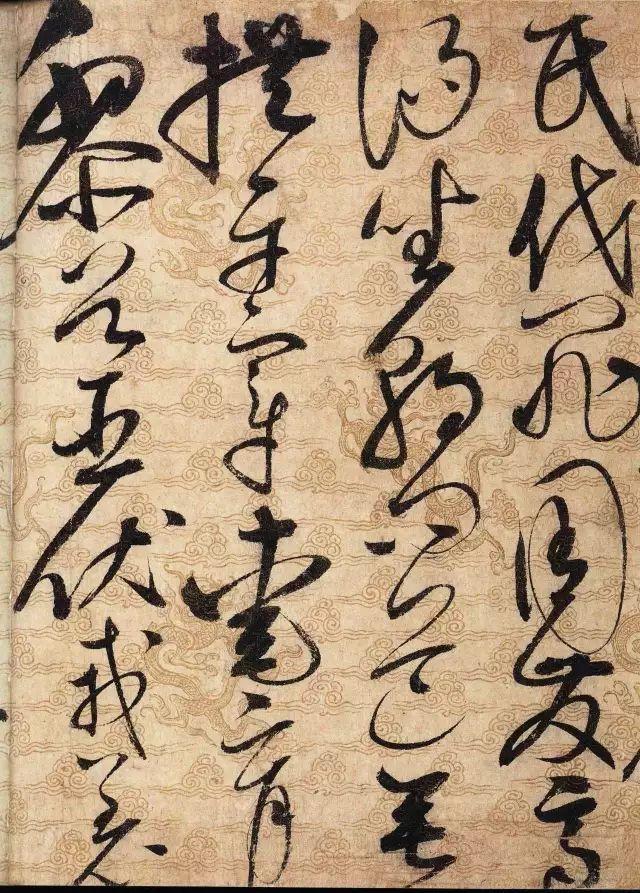 民伐罪周發商
湯坐朝問道垂
拱平章愛育
黎首臣伏戎羌